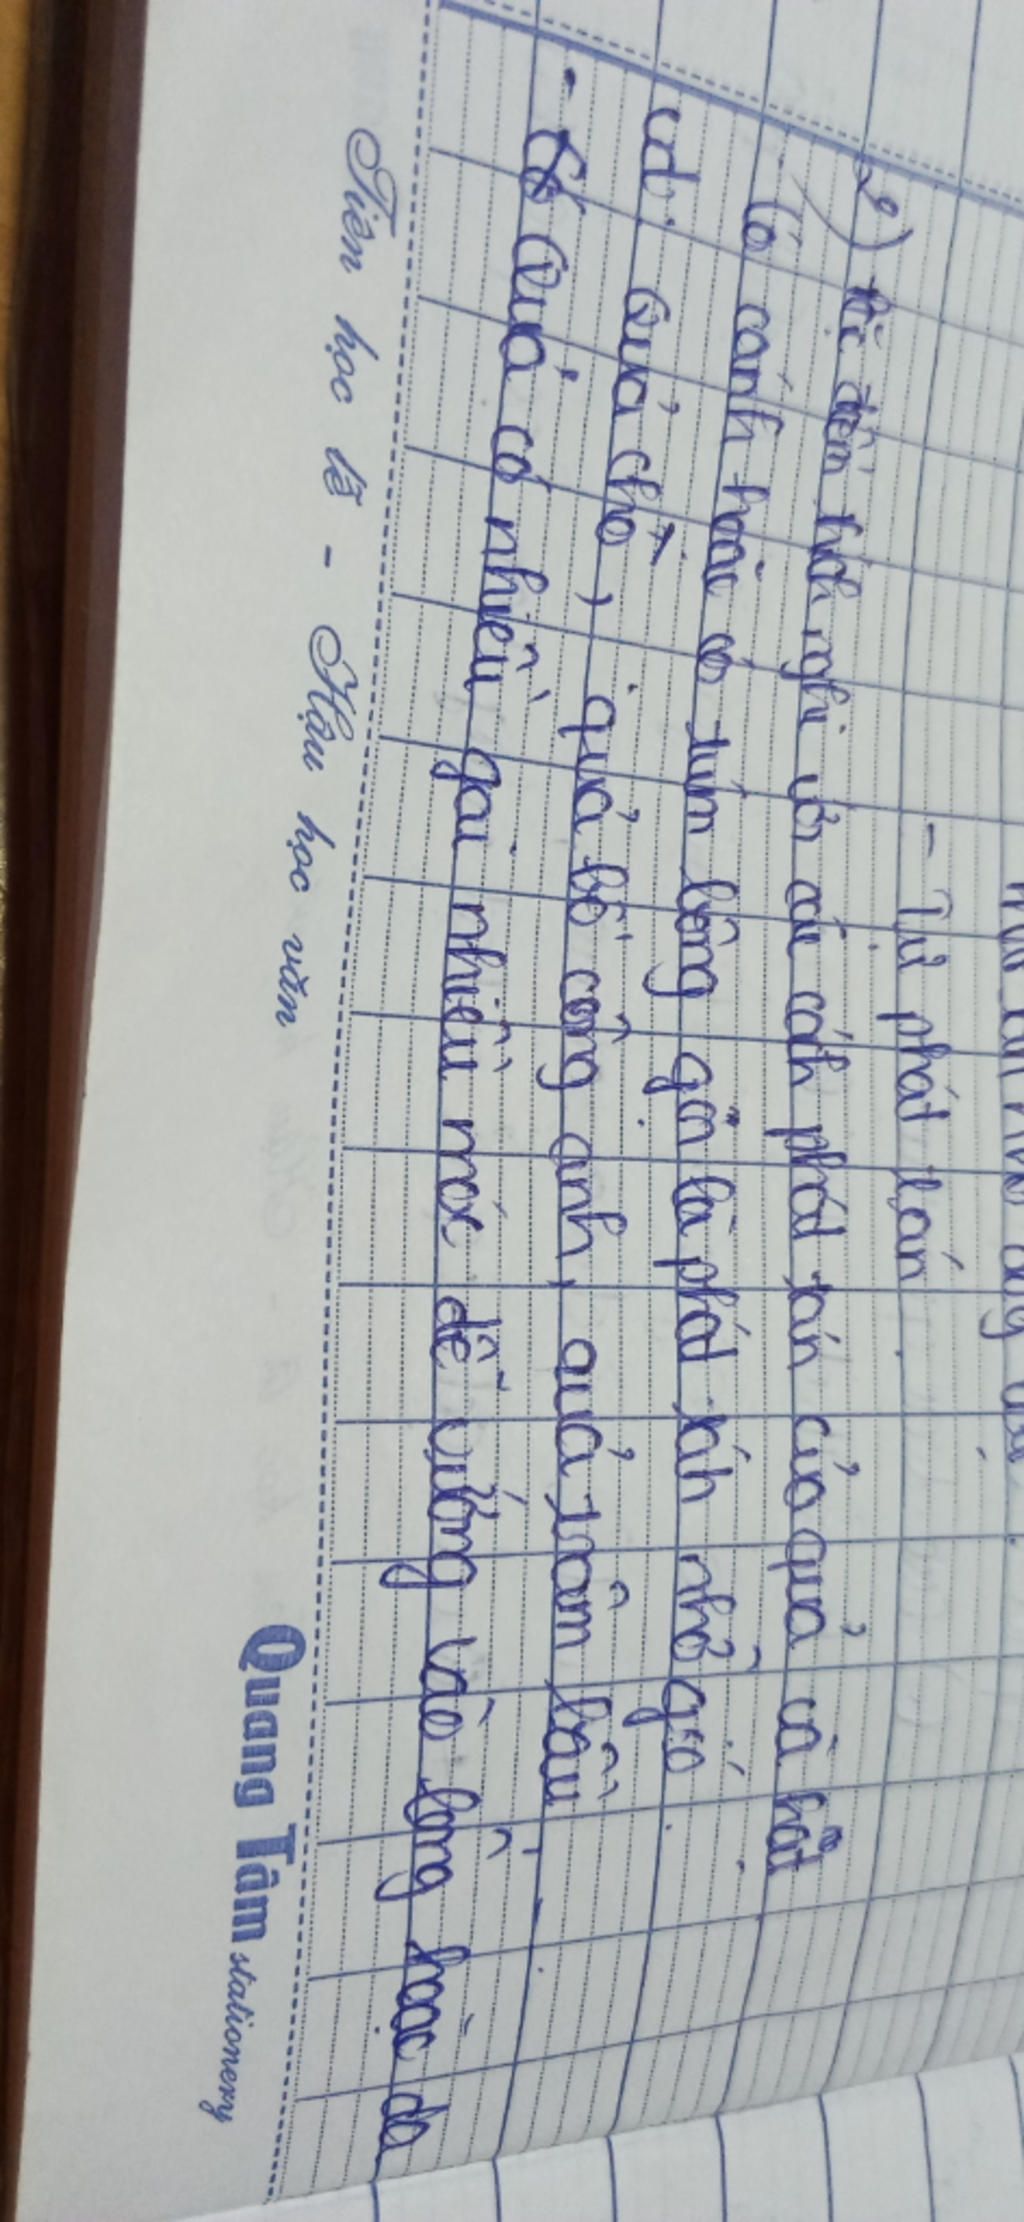 - Tự phát tán
2) Đặc điểm thích nghi với các cách phát tán của quả và hạt
Có cánh hoặc có túm lông gần là phát tán nhờ gió
vd: Quả chò, quả bồ công anh, quả trâm bầu
- Quả có nhiều gai nhiều móc dễ vướng vào lông hoặc da
Tiên học lễ - Hậu học văn
Quang Tâm stationery